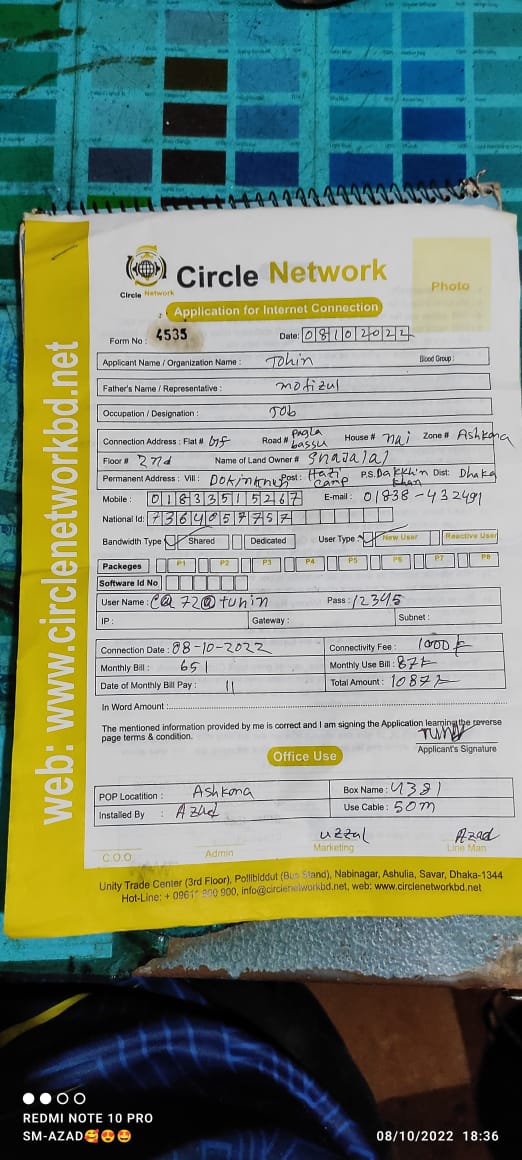 Circle Network
Circle Network
Application for Internet Connection
Photo
web: www.circlenetworkbd.net
Form No : 4535
Date: 08102022
Applicant Name / Organization Name : Tohin
Blood Group :
Father's Name / Representative : mofizul
Occupation / Designation : Job
Connection Address : Flat # Road # Pagla House # nai Zone # Ashkona
Floor # 2nd Name of Land Owner #
Permanent Address : Vill : Post : Hazi Camp P.S. Dakkhin khan Dist: Dhaka
Mobile : 01833515267 E-mail: 01838-432491
National Id: 7364057757
Bandwidth Type Shared Dedicated User Type New User Reactive User
Packeges P1 P2 P3 P4 P5 P6 P7 P8
Software Id No
User Name : C@72@tuhin Pass : 12345
IP : Gateway : Subnet :
Connection Date : 08-10-2022 Connectivity Fee : 1000
Monthly Bill : 651 Monthly Use Bill : 87
Date of Monthly Bill Pay : 11 Total Amount : 1087
In Word Amount :
The mentioned information provided by me is correct and I am signing the Application learning the reverse
page terms & condition.
Applicant's Signature
Office Use
POP Locatition : Ashkona Box Name : 4381
Installed By : Azad Use Cable : 50m
uzzal Azad
C.O.O Admin Marketing Line Man
Unity Trade Center (3rd Floor), Pollibiddut (Bus Stand), Nabinagar, Ashulia, Savar, Dhaka-1344
Hot-Line: + 09611 900, info@circlenetworkbd.net, web: www.circlenetworkbd.net
REDMI NOTE 10 PRO
SM-AZAD🥰😍🤩
08/10/2022 18:36